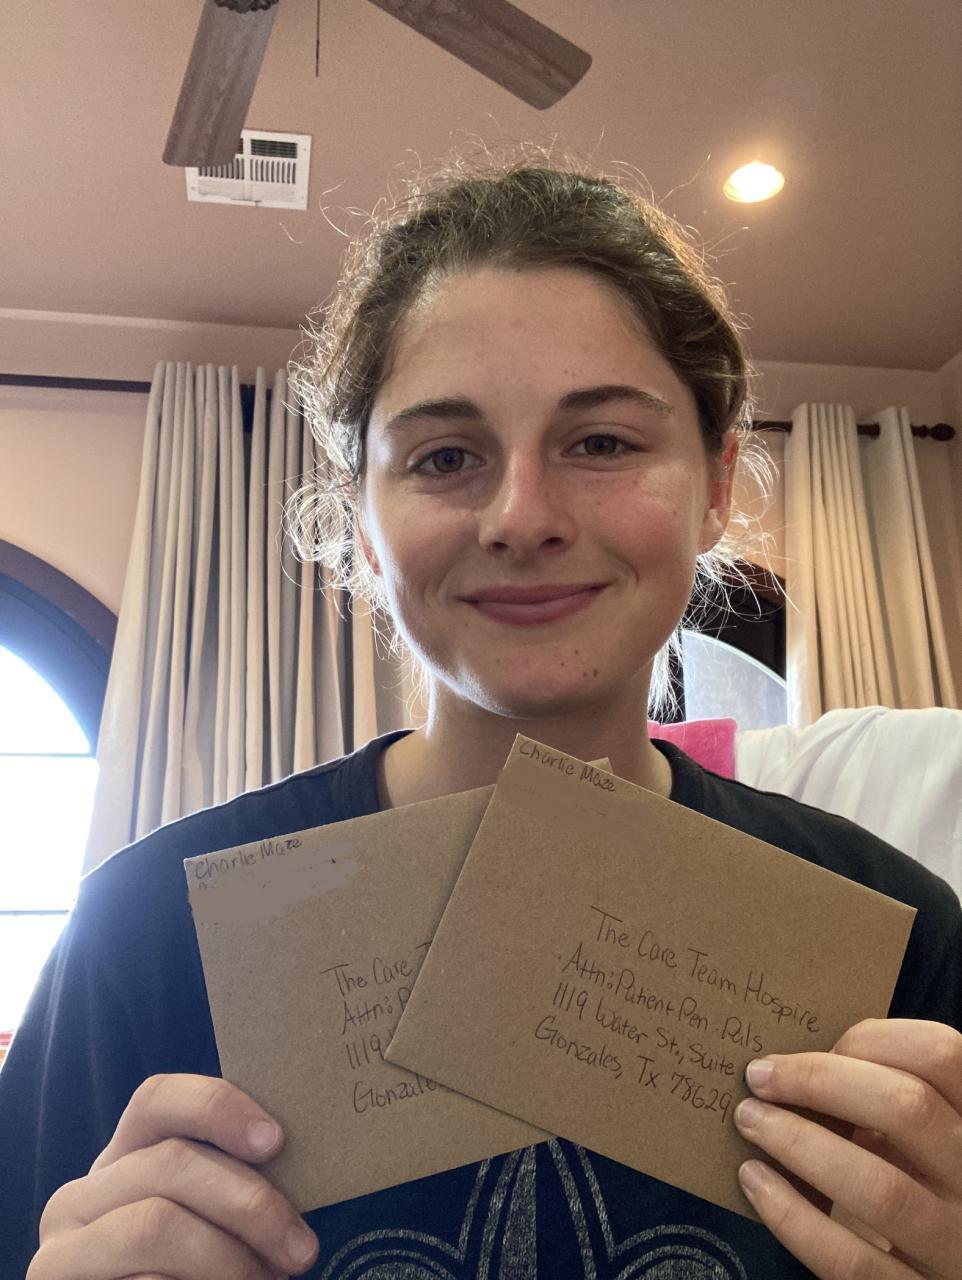 Charlie Maze
The Care
Attn:
1119
Gonzales
Charlie Maze
The Care Team Hospire
Attn: Patient Pen-Pals
1119 Water St., Suite
Gonzales, Tx 78629